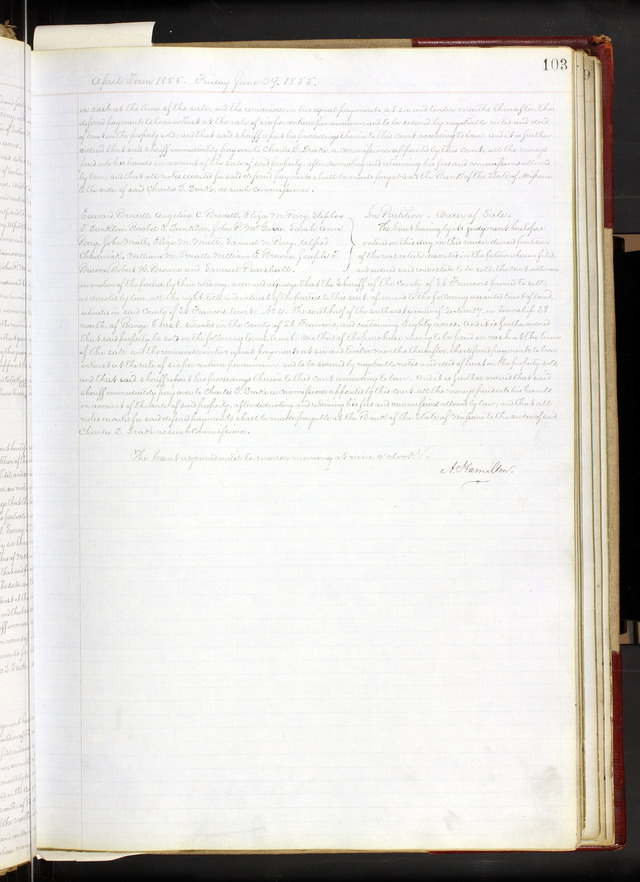 103
April Term 1855. Friday June 29, 1855.
in cash at the time of the sale, and the remainder in two equal payments, at six and twelve months thereafter, the
deferred payments to bear interest at the rate of six per centum per annum, and to be secured by negotiable notes and deed
of trust on the property sold; and that said sheriff report his proceedings therein to this Court according to law. And it is further
ordered that said Sheriff immediately pay over to Charles D. Drake, a commissioner appointed by this Court, all the moneys
paid into his hands on account of the sale of said property, after deducting and retaining his fees and commissions allowed
by law, and that all notes executed for said deferred payments shall be made payable at the Bank of the State of Missouri
to the order of said Charles D. Drake, as such commissioner.
Edward Bredell, Angeline C. Bredell, Eliza M. Perry, Stephen
In Partition. Order of Sale.
John P. McGuire, Sarah Ann
The Court having by its judgment heretofore
Perry, John Mott, Eliza M. Mott, Samuel M. Perry, Alfred
entered on this day in this cause, ordered partition
William M.
William E. Browne, Joseph T.
of the real estate described in the petition herein filed,
Browne, Robert H. Browne and Samuel P. Marshall.
and ordered said real estate to be sold, the court with con-
of the parties, by their attorney, order and require that the Sheriff of the County of St. Francois proceed to sell,
as directed by law, all the right, title and interest of the parties to this suit, of, in and to the following described tract of land,
situate in said County of St. Francois, to wit: No. 4. The south half of the southeast quarter of section 17, in Township 38
north, of Range East, situated in the County of St. Francois, and containing Eighty acres. And it is further ordered
that said property be sold on the following terms, to wit: one third of the purchase money to be paid in cash at the time
of the sale, and the remainder in two equal payments, at six and twelve months thereafter, the deferred payments to bear
interest at the rate of six per centum per annum, and to be secured by negotiable notes and deed of trust on the property sold;
and that said sheriff report his proceedings therein to this Court according to law. And it is further ordered that said
Sheriff immediately pay over to Charles D. Drake a commissioner appointed by this Court all the moneys paid into his hands
on account of the sale of said property, after deducting and retaining his fees and commissions allowed by law; and that all
notes executed for said deferred payments shall be made payable at the Bank of the State of Missouri to the order of said
Charles D. Drake as such Commissioner.
The Court adjourned until to morrow morning at nine o'clock.
A. Hamilton.